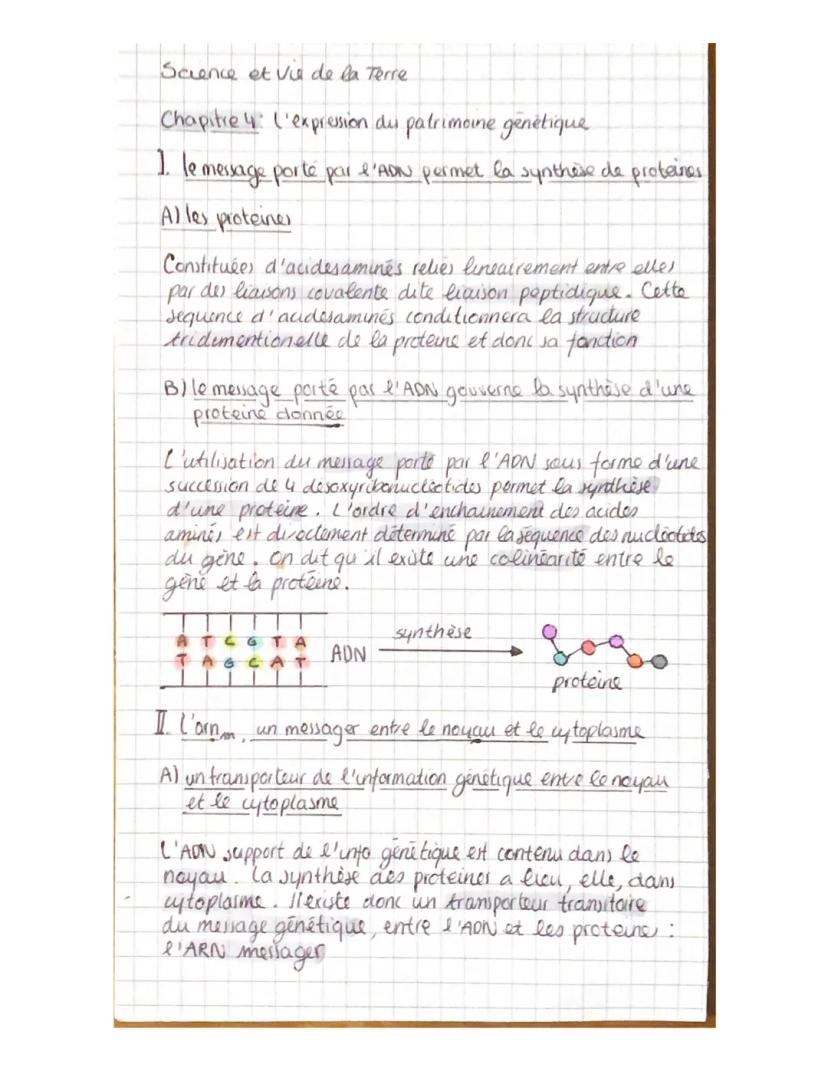 Science et Vie de la Terre
Chapitre 4: l'expression du patrimoine génétique
I. le message porté par l'ADN permet la synthèse de proteines
A) les proteines
Constituées d'acides aminés reliés lineairement entre elles
par des liaisons covalente dite liaison peptidique. Cette
sequence d'acides aminés conditionnera la structure
tridimentionelle de la proteine et donc sa fonction
B) le message porté par l'ADN gouverne la synthèse d'une
proteine donnée
L'utilisation du message porté par l'ADN sous forme d'une
succession de 4 désoxyribonucléotides permet la synthèse
d'une protéine. L'ordre d'enchainement des acides
aminés est directement déterminé par la séquence des nucléotides
du gène. On dit qu'il existe une colinéarité entre le
gène et la protéine.
A T C G T A
T A G C A T
ADN
synthèse
protéine
II. L'arn m, un messager entre le noyau et le cytoplasme
A) un transporteur de l'information génétique entre le noyau
et le cytoplasme
L'ADN support de l'info génétique est contenu dans le
noyau. La synthèse des proteines a lieu, elle, dans
cytoplasme. Il existe donc un transporteur transitoire
du message génétique, entre l'ADN et les proteines :
l'ARN messager